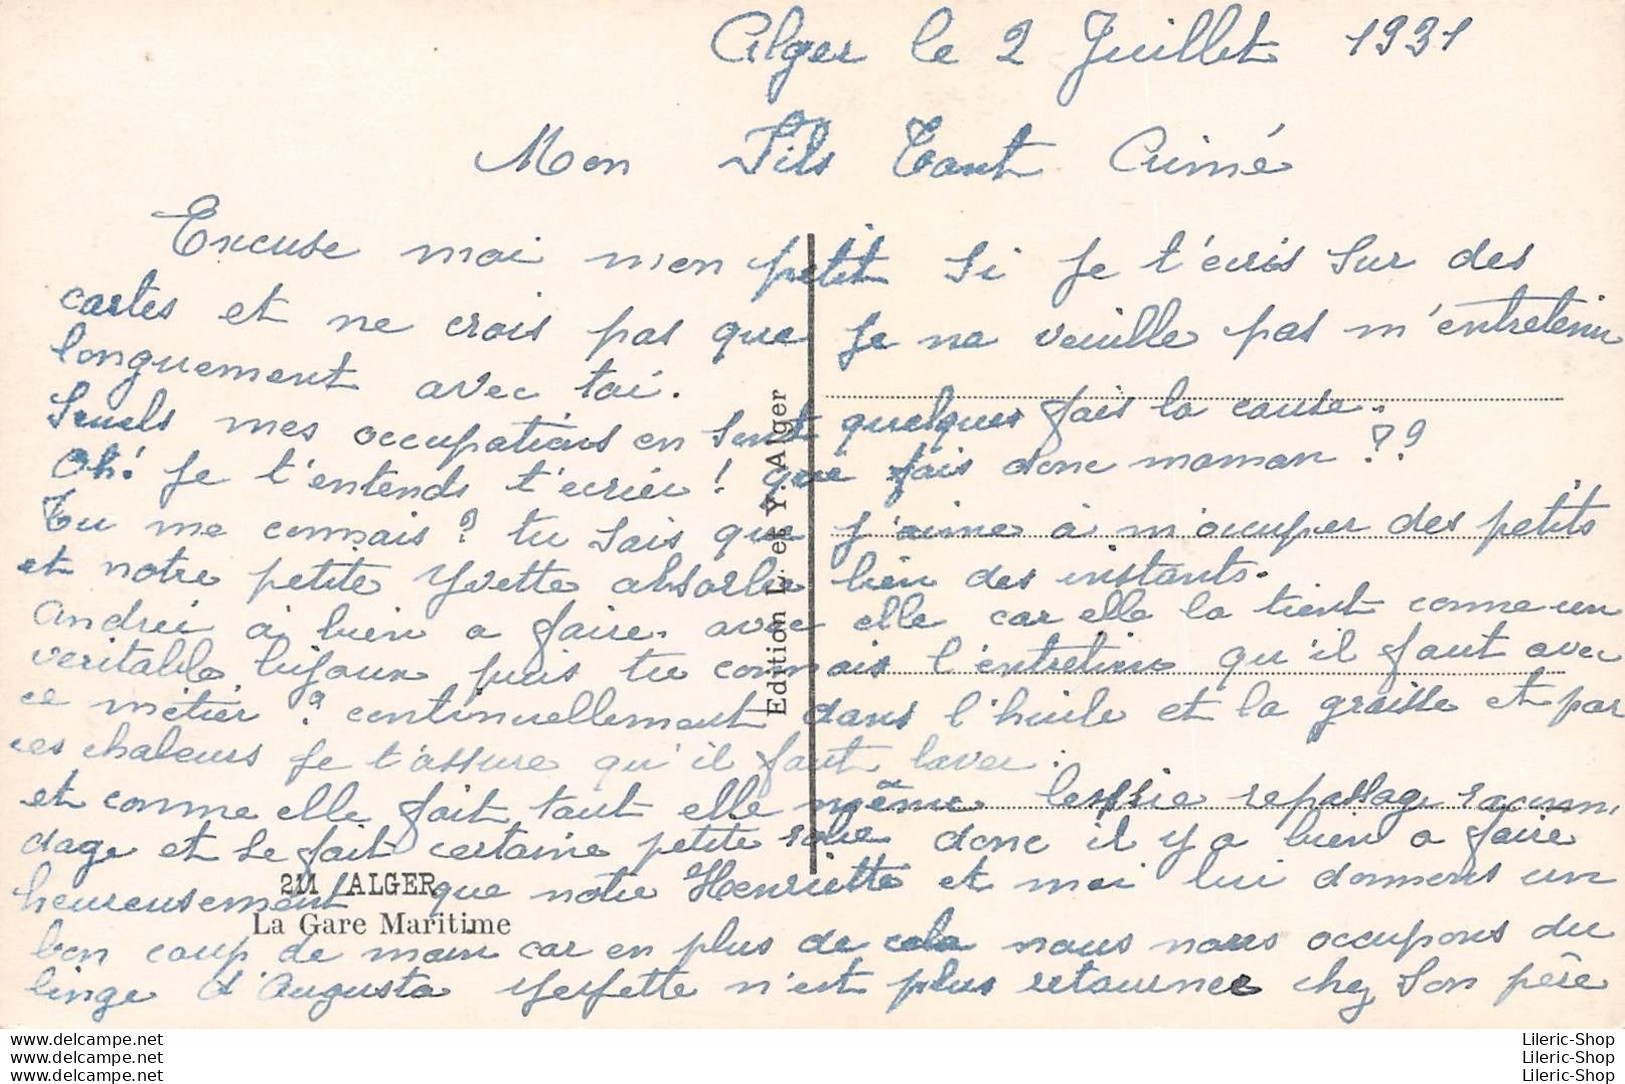 Alger le 2 Juillet 1931
Mon Fils Tant Aimé
Excuse moi mon petit si je t'écris sur des
cartes et ne crois pas que je ne veuille pas m'entretenir
longuement avec toi.
Seuls mes occupations en sont quelques fois la cause.
Oh! Je t'entends t'écrier! que fais donc maman??
Tu me connais? tu sais que j'aime à m'occuper des petits
et notre petite Yvette absorbe bien des instants.
Andrée à bien a faire. avec elle car elle la tient comme un
veritable bijoux puis tu connais l'entretien qu'il faut avec
ce métier? continuellement dans l'huile et la graisse et par
ces chaleurs je t'assure qu'il faut laver.
et comme elle fait tout elle même lessive repassage racomo
dage et se fait certaine petite robe donc il y a bien a faire
heureusement que notre Henriette et moi lui donnons un
bon coup de main car en plus de cela nous nous occupons du
linge d'Augusta n'est plus retournee chez son père
Edition L. et Y. Alger
211 ALGER
La Gare Maritime
www.delcampe.net
www.delcampe.net
www.delcampe.net
Lileric-Shop
Lileric-Shop
Lileric-Shop